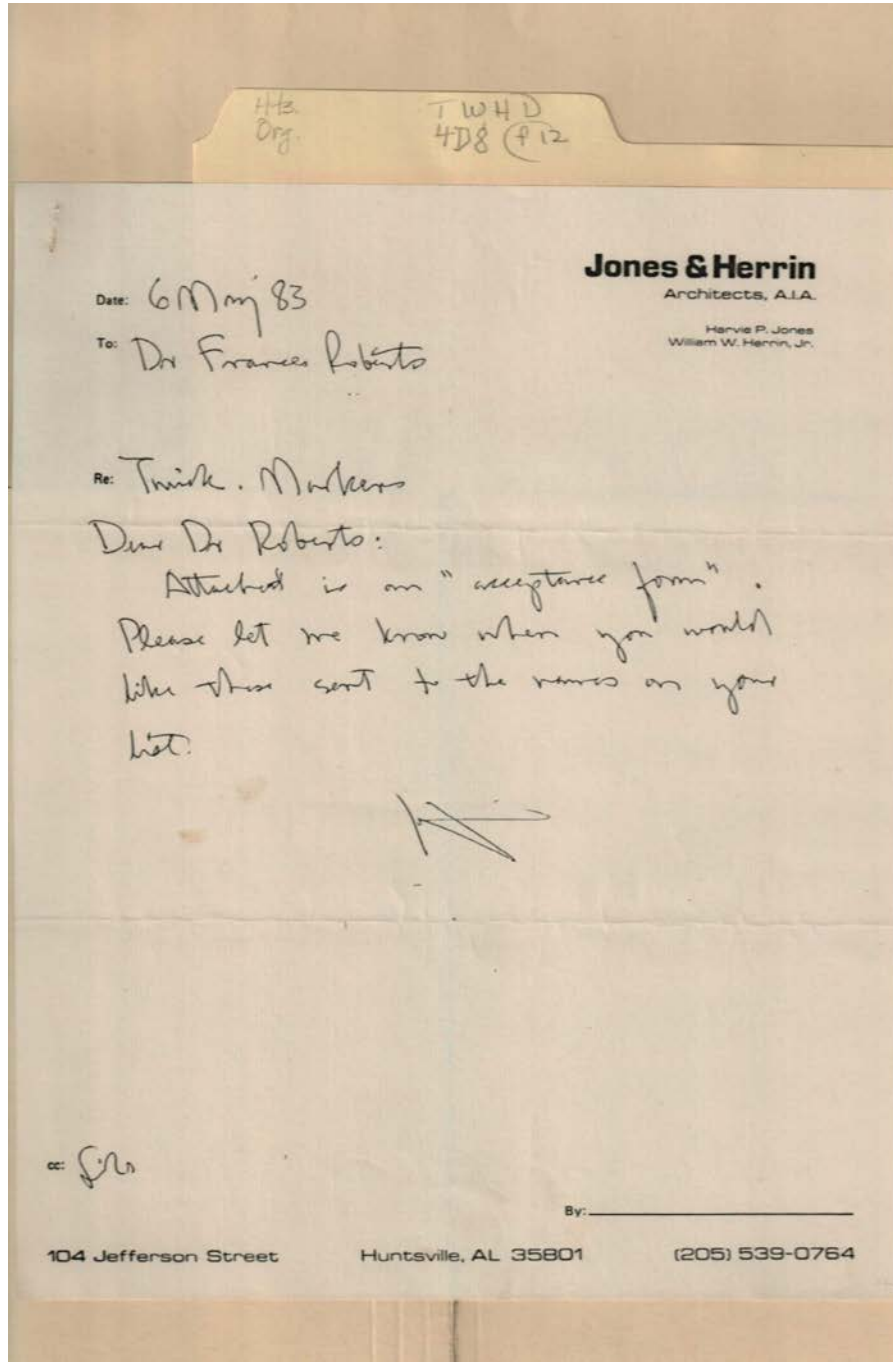 HHS.
Org.
TWHD
4D8 (P 12
Jones & Herrin
Architects, A.I.A.
Harvie P. Jones
William W. Herrin, Jr.
Date: 6 May 83
To: Dr Frances Roberts
Re: Twick. Markers
Dear Dr Roberts:
Attached is an "acceptance form".
Please let me know when you would
like these sent to the names on your
list.
cc: file
By:
104 Jefferson Street Huntsville, AL 35801 (205) 539-0764